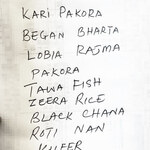 KARI PAKORA
BEGAN BHARTA
LOBIA RAJMA
PAKORA
TAWA FISH
ZEERA RICE
BLACK CHANA
ROTI NAN